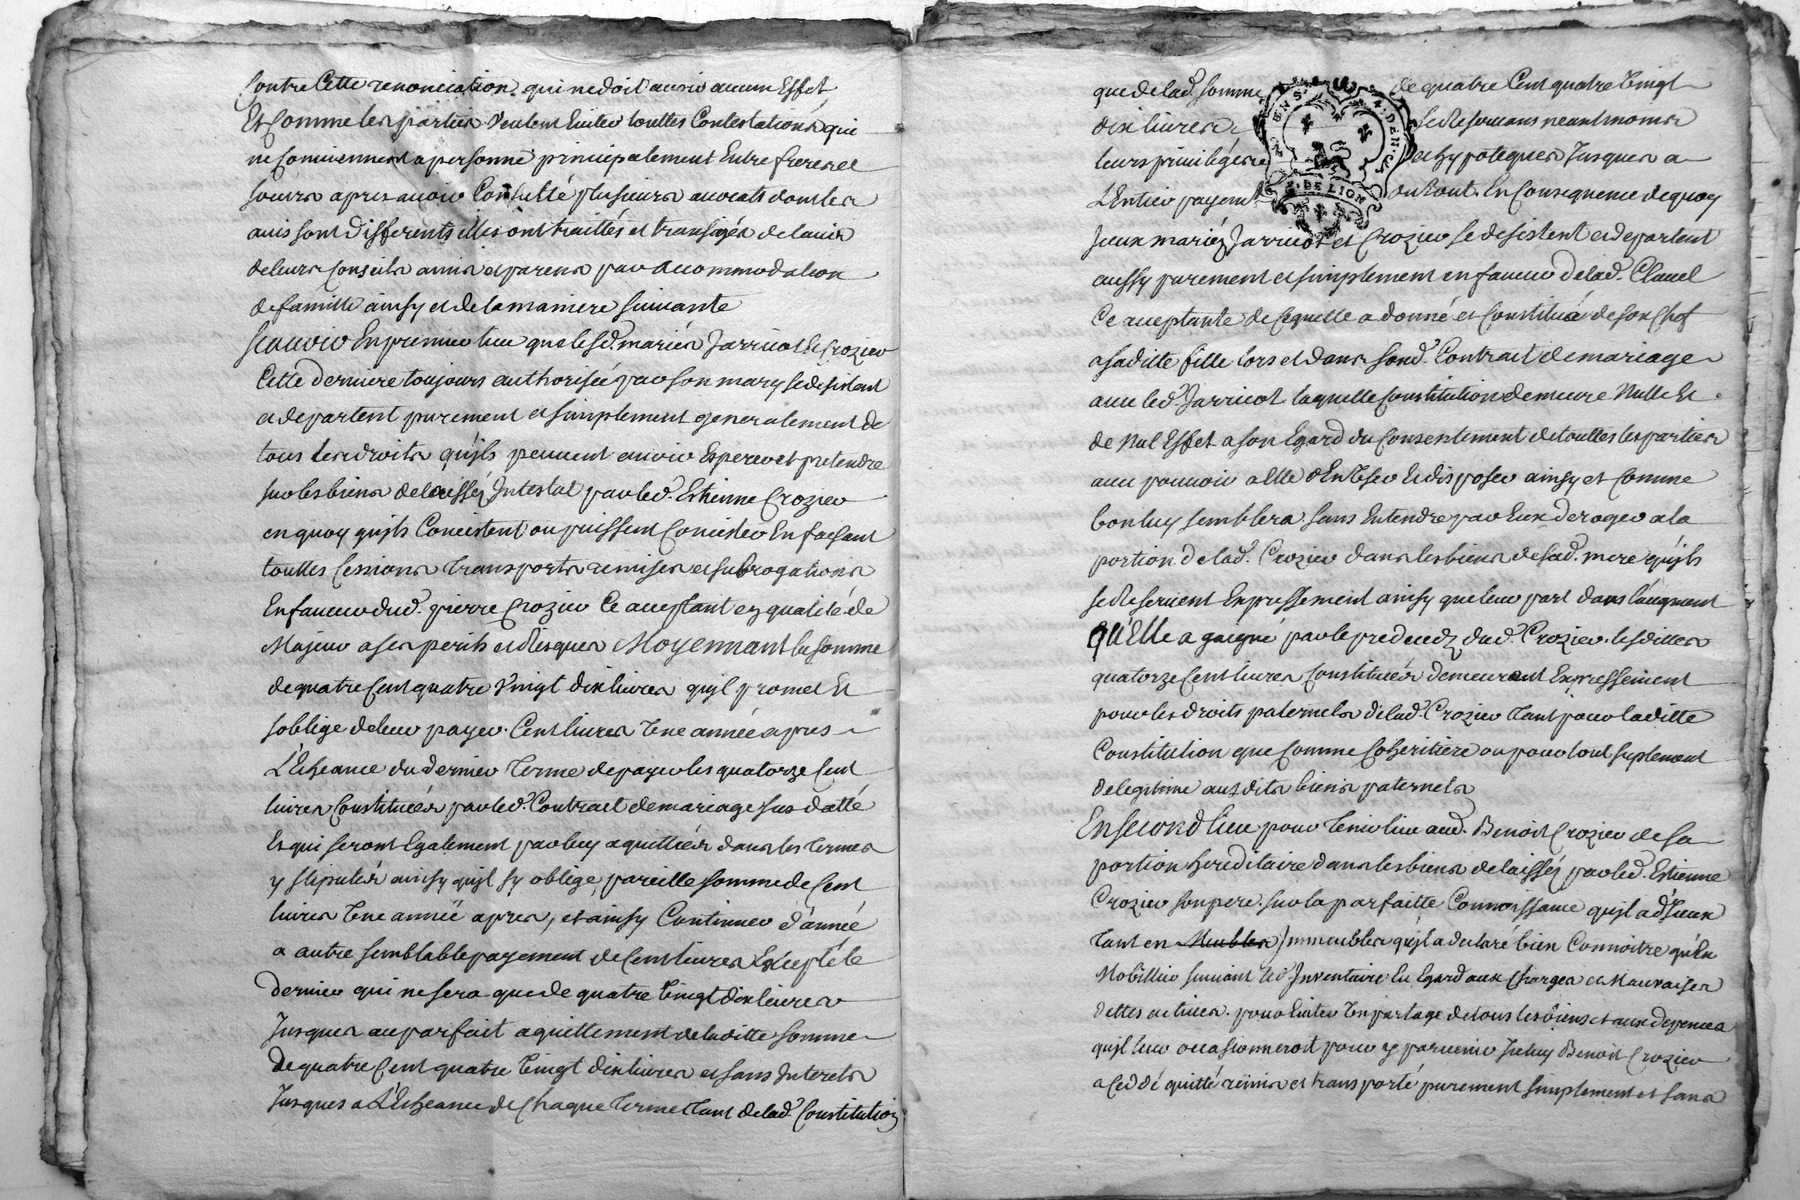 contre Cette renonciation qui ne doit avoir aucun Effet
Et Comme les parties veulent Eviter touttes Contestations qui
ne Conviennent a personne principalement Entre freres et
soeurs apres avoir Consulté plusieurs avocats dont les
avis sont differents illes ont traittés et transigés de lavis
de leurs Conseils amis et parens par accommodation
de famille ainsy et de la maniere suivante
Scauoir En premier lieu que lesd. mariés Jarricot et Crozier
Cette derniere toujours authorisée par son mary se desistent
et departent purement et simplement generalement de
tous les droits qu'jls peuvent avoir Esperer et pretendre
sur les biens delaissés Jntestat par led. Estienne Crozier
en quoy qu'jls Concistent ou puissent Concister En faisant
touttes Cessions transports remises et subrogations
En faveur dud. pierre Crozier Ce acceptant en qualité de
Majeur a ses perils et Risques Moyennant la somme
de quatre Cent quatre vingt dix livres qu'jl promet Et
soblige de leur payer Cent livres Une année apres
L'Echeance du dernier terme de payer les quatorze Cent
livres Constituées par led. Contract de mariage sus datté
Et qui seront Egalement par luy aquittées dans les termes
y stipulés ainsy qu'jl sy oblige, pareille somme de Cent
livres Une année apres, et ainsy Continuer d'année
a autre semblable payement de Cent livres Excepté le
dernier qui ne sera que de quatre Vingt dix livres
Jusques au parfait aquittement de laditte somme
De quatre Cent quatre Vingt dix livres et sans Jnterets
Jusques a L'Echeance de Chaque terme tant de lad. Constitution
que de lad. somme de quatre Cent quatre Vingt
dix livres se Reservans neantmoins
leurs privileges et hypoteques Jusques a
L'Entier payemt. du tout. En Consequence de quoy
Jceux mariés Jarricot et Crozier se desistent et departent
aussy purement et simplement en faveur de lad. Clavel
Ce acceptante de Ce quelle a donné et Constitué de son Chef
a sa ditte fille lors et dans sond. Contrat de mariage
avec led. Jarricot laquelle Constitution demeure Nulle Et
de Nul Effet a son Egard du Consentement de touttes les parties
avec pouvoir a Elle d'En User Et disposer ainsy et Comme
bon luy semblera sans Entendre par Eux deroger a la
portion de lad. Crozier dans les biens de sad. mere qu'jls
se Reservent Expressement ainsy que leur part dans l'augment
QU'Elle a gaigné par le predecedz dud. Crozier. lesdittes
quatorze Cent livres Constituées demeurant Expressement
pour les droits paternels de lad. Crozier tant pour laditte
Constitution que Comme Coheritiere ou pour tout suplement
de legitime ausdits biens paternels
En second lieu pour tenir lieu aud. Benoit Crozier de sa
portion hereditaire dans les biens delaissés par led. Estienne
Crozier son pere sur la parfaitte Connoissance qu'jl a d'Jceux
tant en Meubles Jmmeubles qu'jl a declaré bien Connoitre qu'En
Mobillier suivant led. Jnventaire Eu Egard aux Charges et Mauvaises
dettes actives. pour Eviter Un partage de tous les biens et aux depences
qu'jl leur occasionneroit pour y parvenir Jceluy Benoit Crozier
a Ceddé quitté remis et transporté purement simplement et sans
GENS. 4. DEN.
G. DE LION